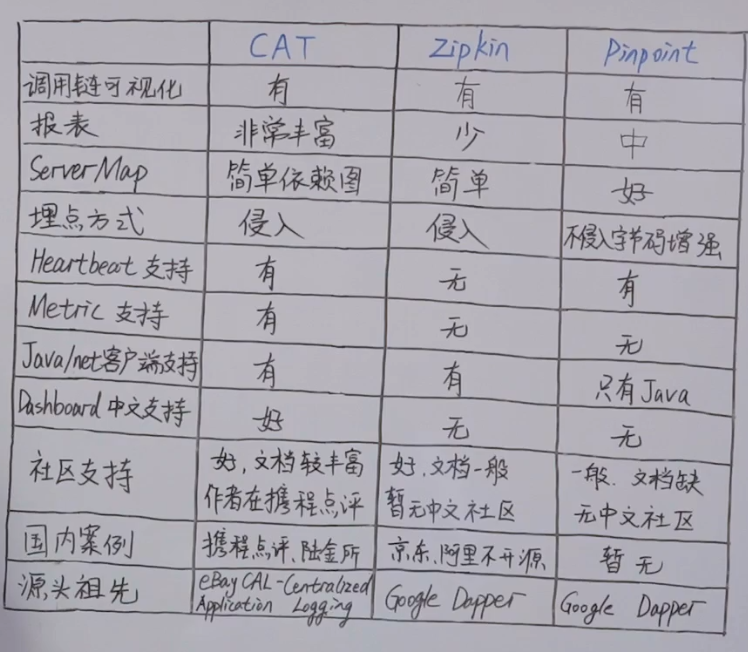 CAT Zipkin Pinpoint
调用链可视化 有 有 有
报表 非常丰富 少 中
ServerMap 简单依赖图 简单 好
埋点方式 侵入 侵入 不侵入字节码增强
Heartbeat支持 有 无 有
Metric支持 有 无 无
Java/net客户端支持 有 有 只有Java
Dashboard中文支持 好 无 无
社区支持 好,文档较丰富 好、文档一般 一般、文档缺
作者在携程点评 暂无中文社区 无中文社区
国内案例 携程点评、陆金所 京东、阿里不开源 暂无
源头祖先 eBay CAL-Centralized Google Dapper Google Dapper
Application Logging